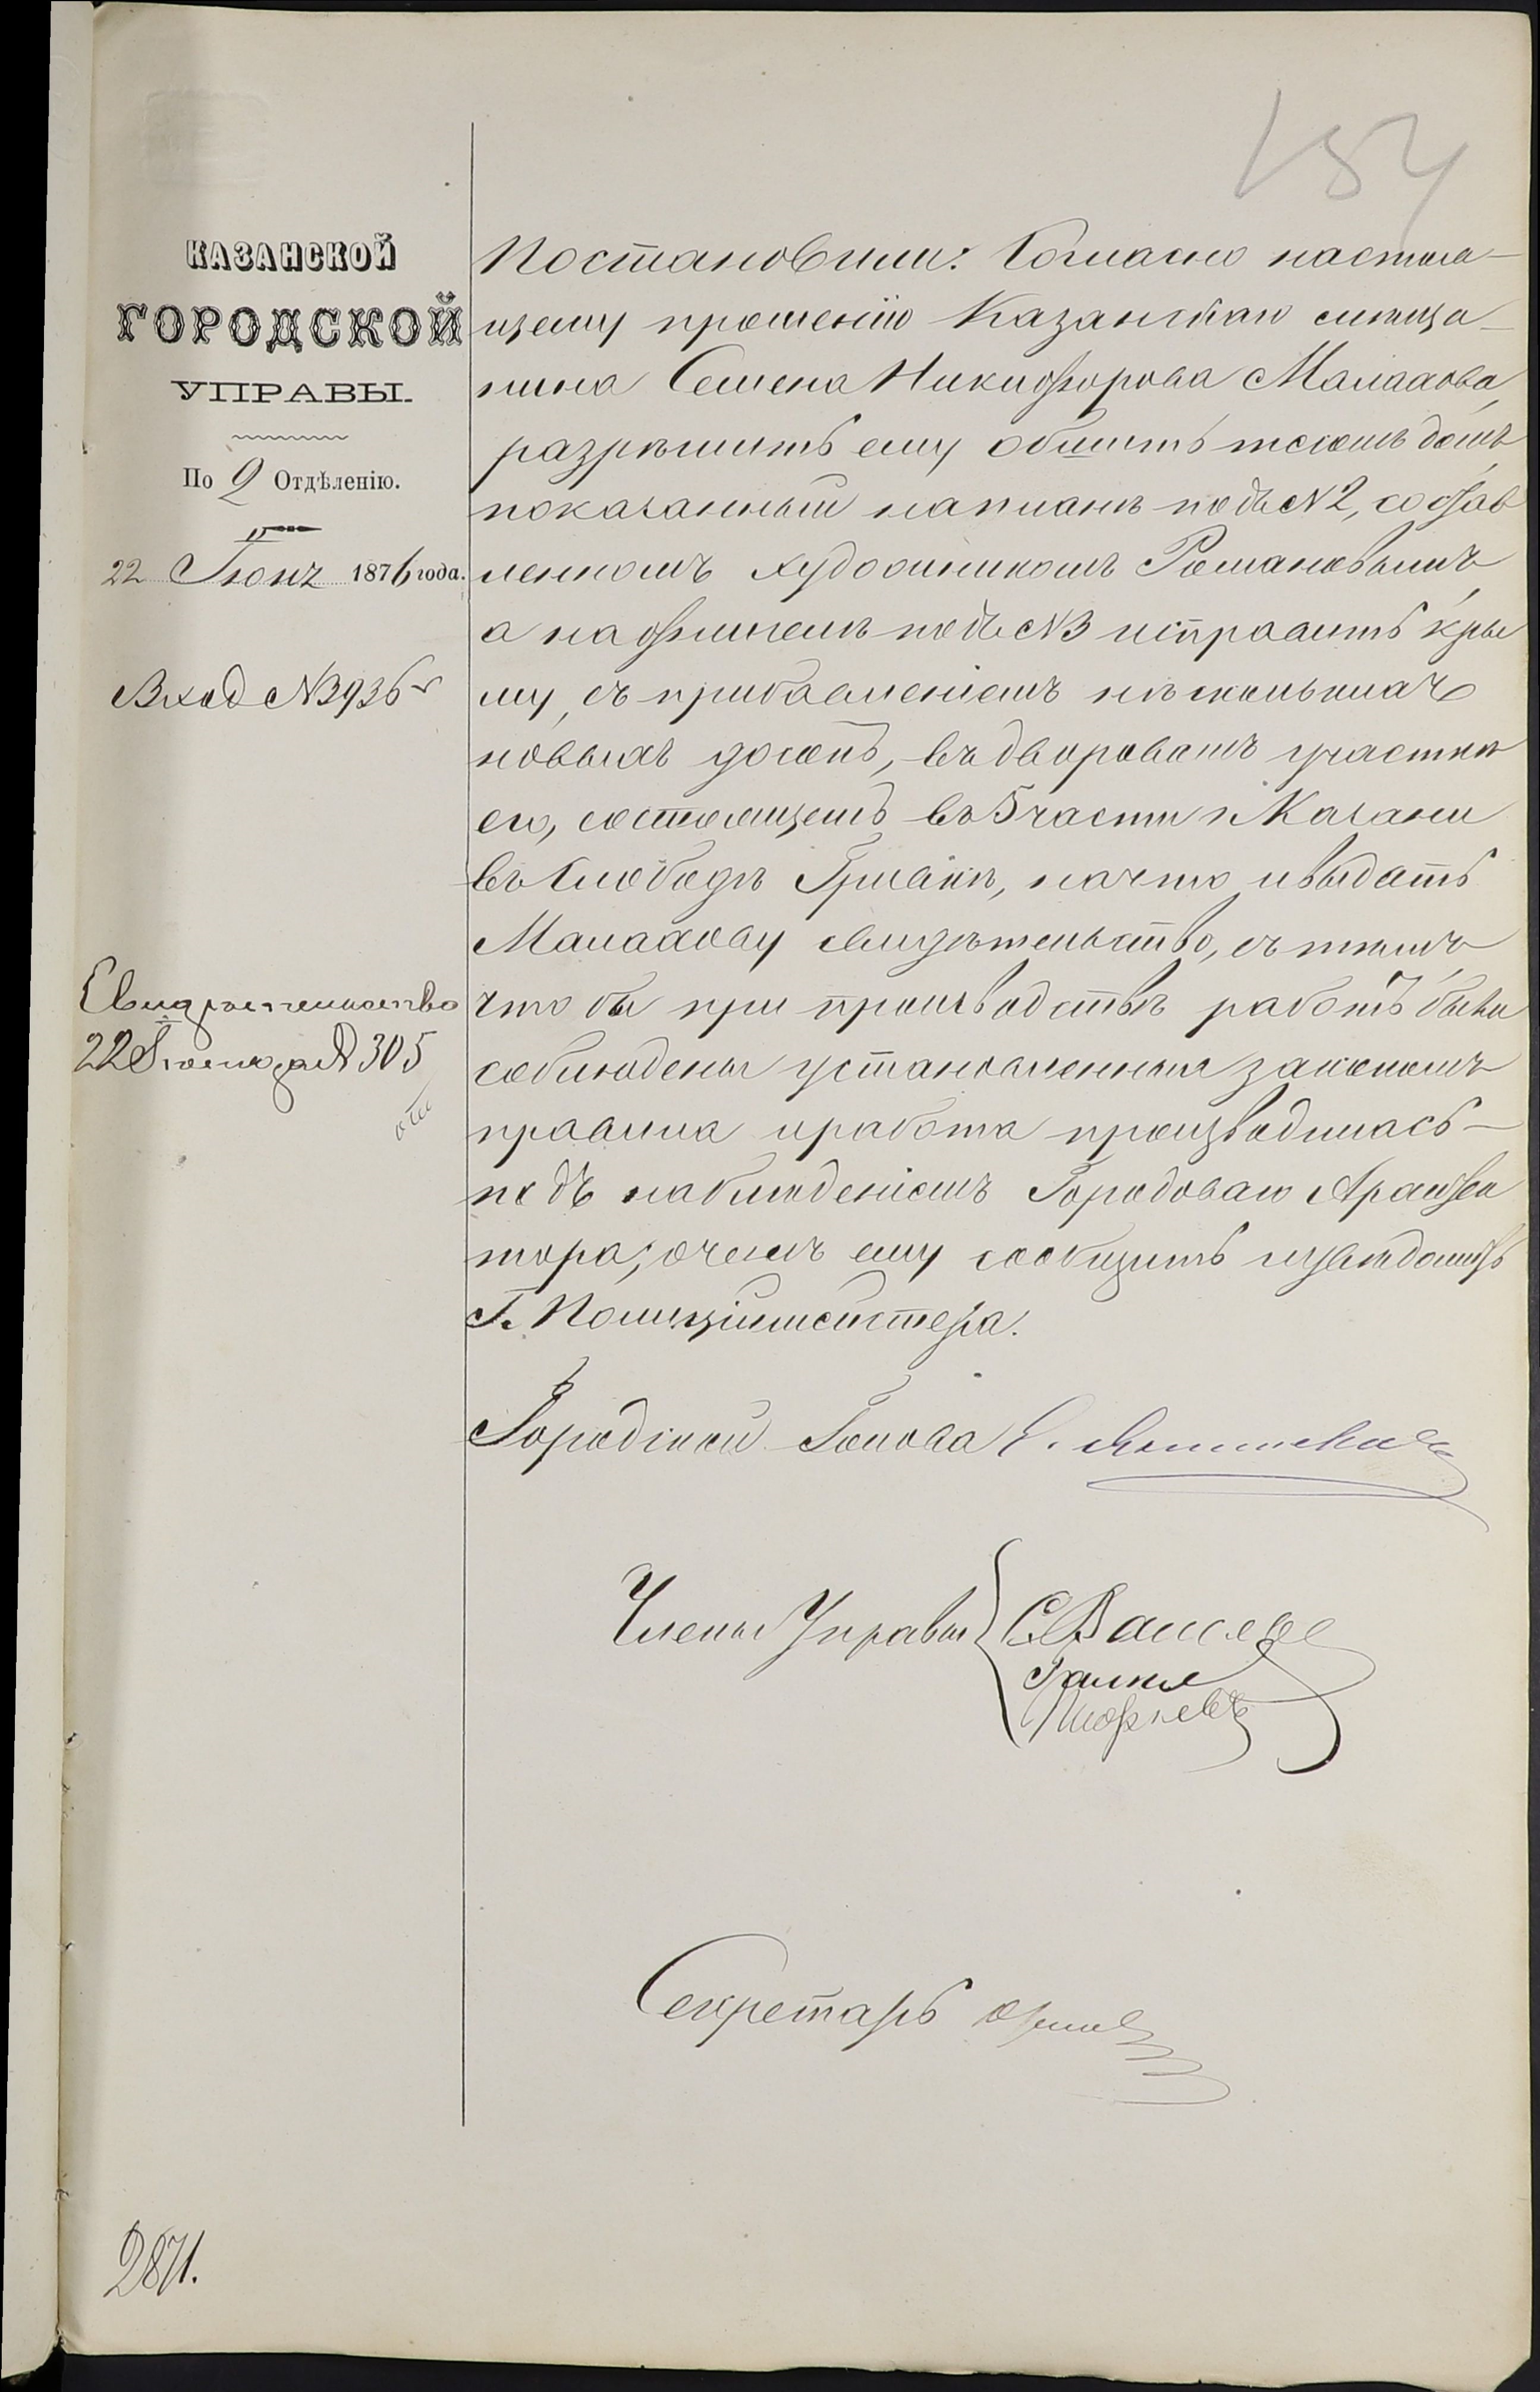 154
КАЗАНСКОЙ
ГОРОДСКОЙ
УПРАВЫ.
По 2 Отдѣленію.
22 Іюня 1876 года.
Вход №3936
Свидѣтельство
22 Іюня за №305
2871.
Постановили: Согласно настоя-
щему прошенію Казанскаго мѣща-
нина Семена Никифорова Малахова,
разрѣшить ему обшить тесомъ домъ
показанный на планѣ подъ №2, состав
ленномъ художникомъ Романовымъ
а на флигелѣ подъ №3 исправить кры
шу, съ прибавленіемъ нѣсколькихъ
новыхъ досокъ, въ дворовомъ участкѣ
его, состоящемъ въ 5 части г. Казани
въ Слободѣ Гривкѣ, на что и выдать
Малахову свидѣтельство, съ тѣмъ
что бы при производствѣ работъ были
соблюдены установленныя закономъ
правила и работа производилась
подъ наблюденіемъ Городоваго Архитек
тора, о чемъ ему сообщить и увѣдомить
Г. Полиціймейстера.
Городской Голова
Члены Управы
Секретарь